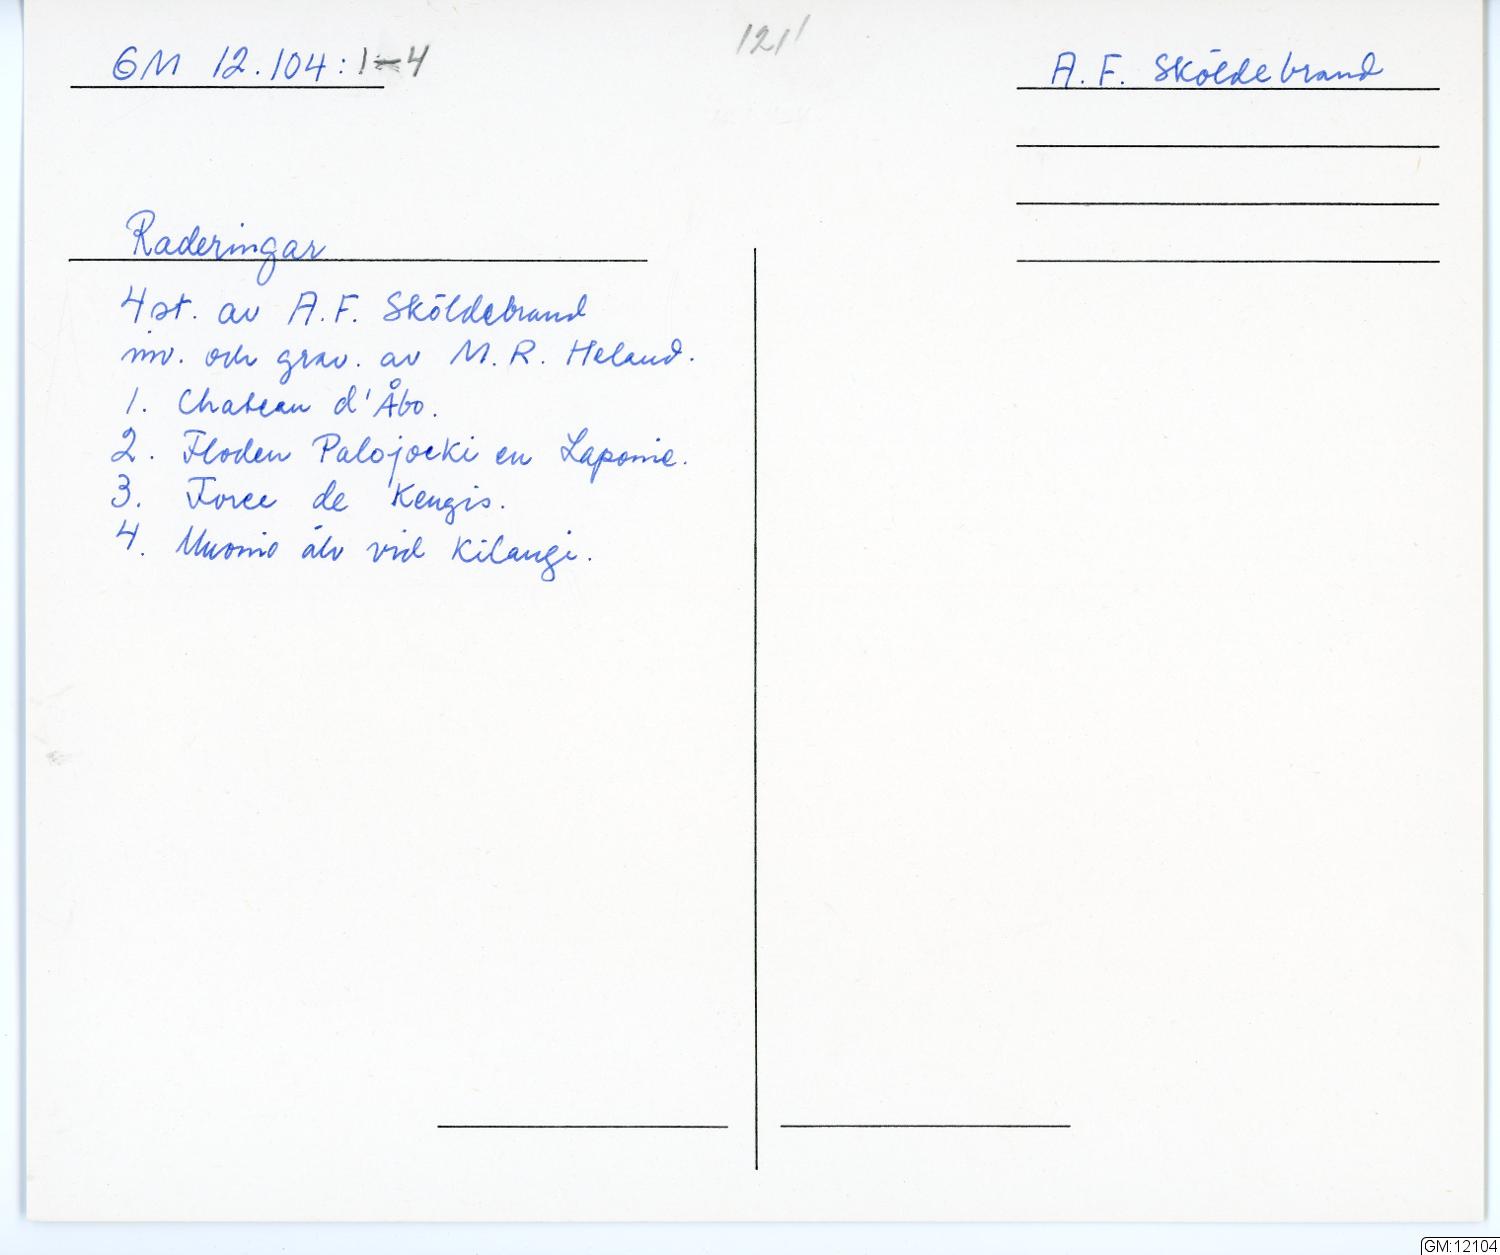 GM 12.104:1-4
121
A. F. Sköldebrand
Raderingar
4 st. av A. F. Sköldebrand
inv. och grav. av M. R. Heland.
1. Chateau d'Åbo.
2. Floden Palojocki en Laponie.
3. Force de Kengis.
4. Muonio älv vid Kilangi.
GM:12104